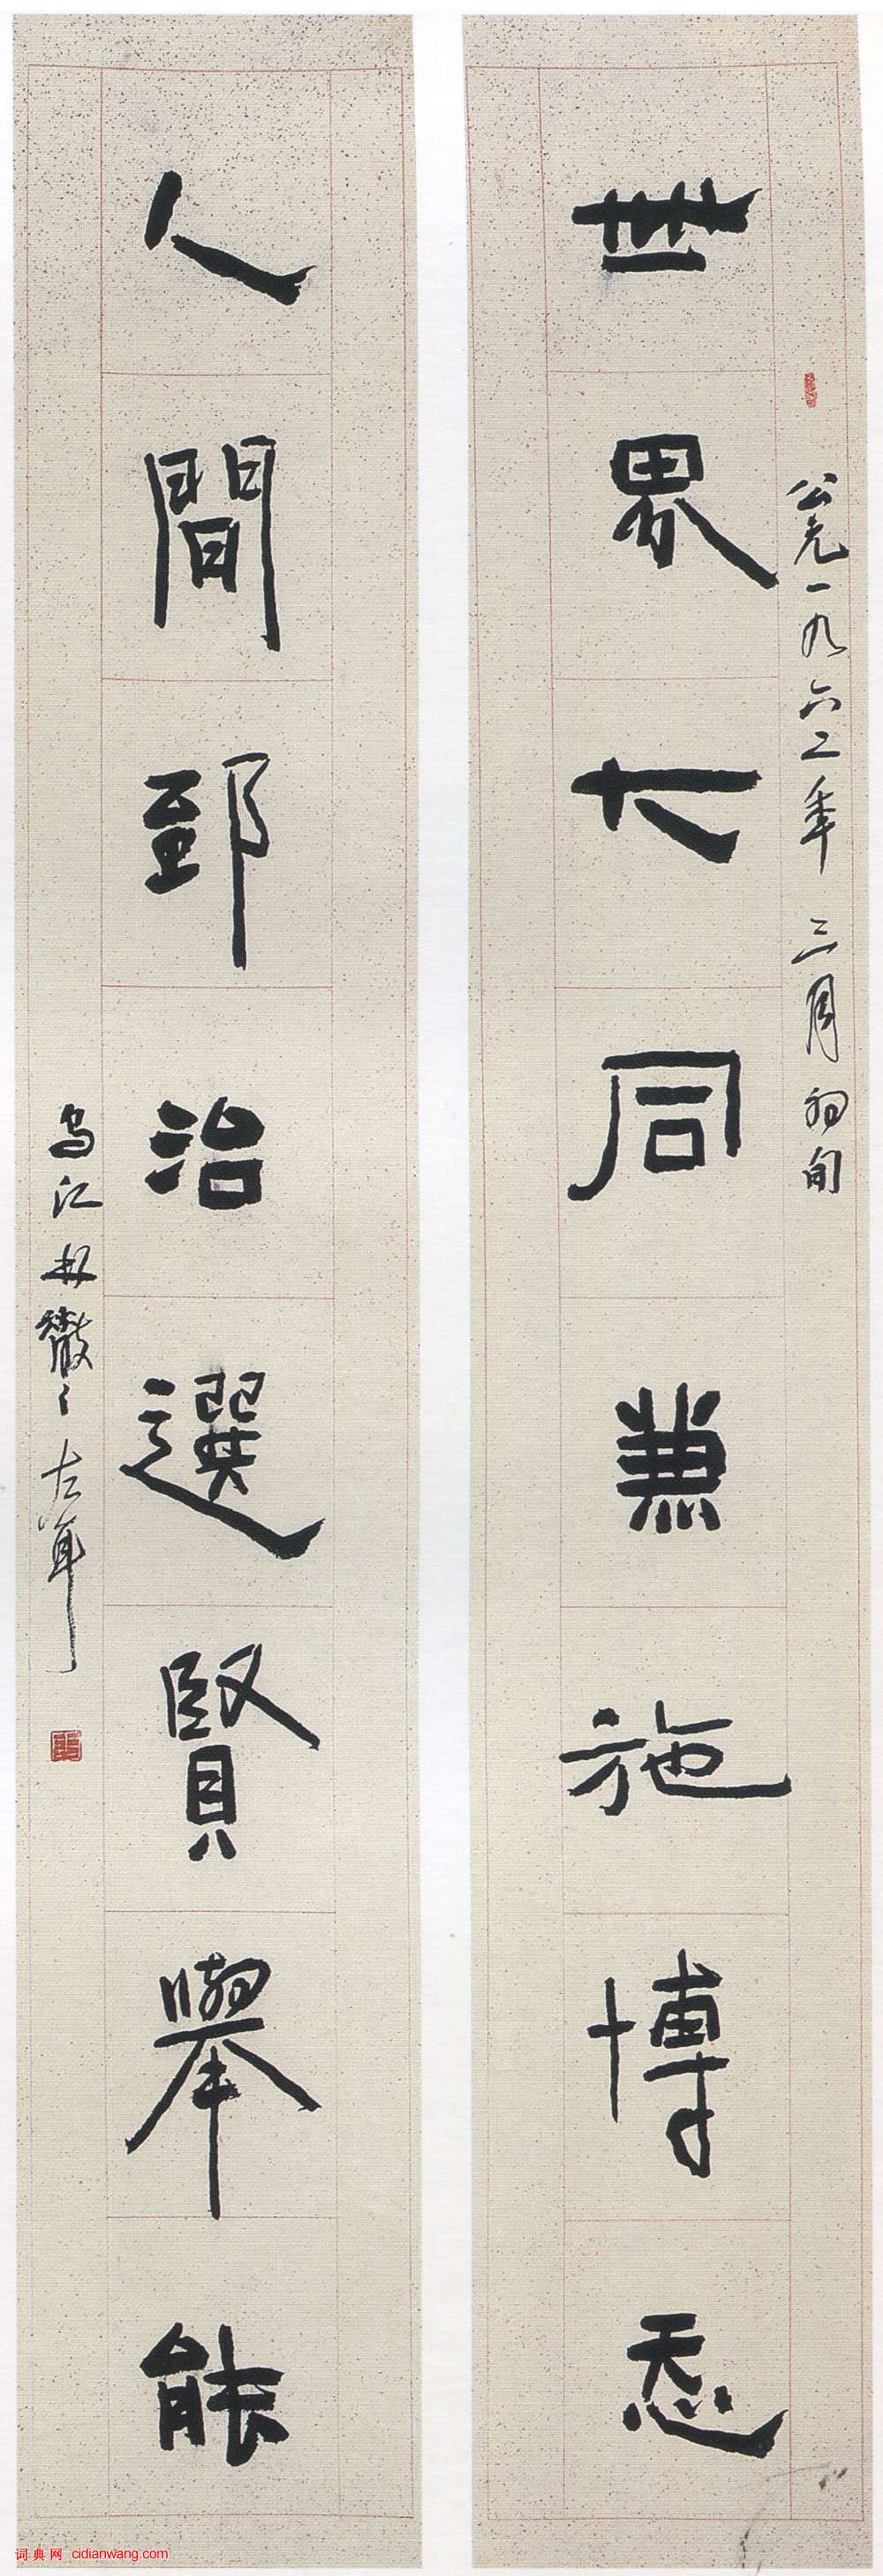 公元一九六二年三月初旬
世界大同兼施博㤅
人間郅治選賢舉能
烏江林散之左耳
词典网 cidianwang.com